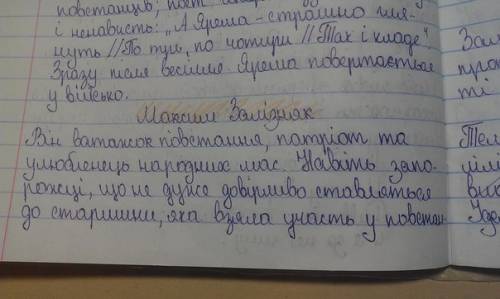 повстанців, поет
і ненависть: „А Ярема – страшно гля-
нуть // По три, по чотири // Так і кладе".
Зразу після весілля Ярема повертається
у військо.
Максим Залізняк
Він ватажок повстання, патріот та
улюбленець народних мас. Навіть запо-
рожці, що не дуже довірливо ставляться
до старшини, яка взяла участь у повстан-
Зал
прот
ті
Тел
ціл